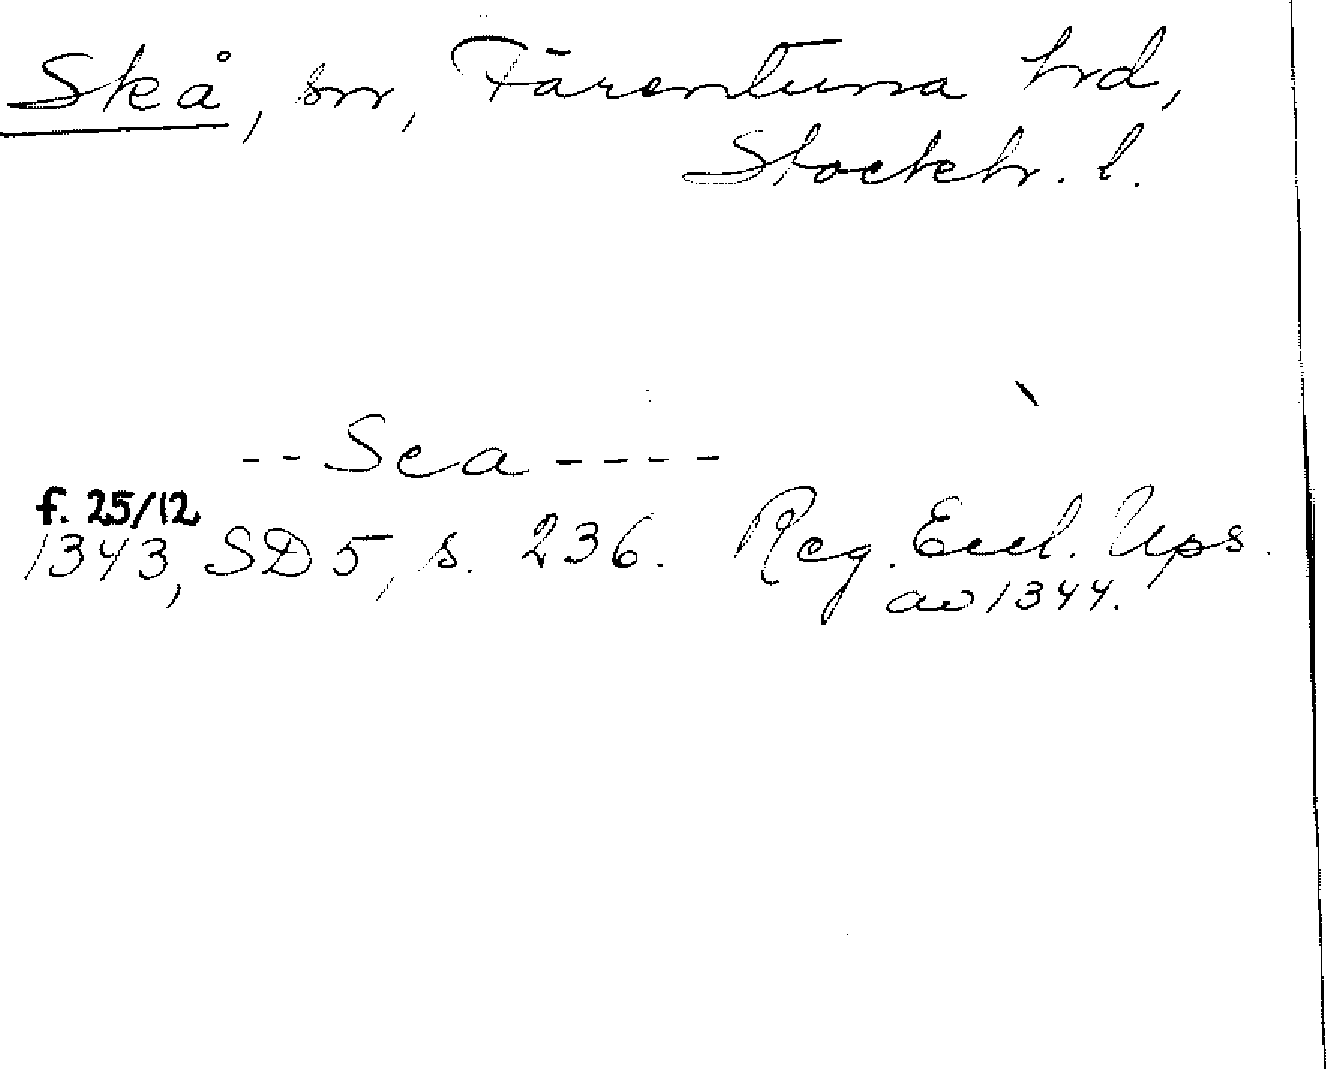 Skå, sn, Färentuna hrd,
Stockh. l.
-- Sca ----
f. 25/12
1343, SD 5, s. 236. Reg. Eccl. Ups.
av 1344.